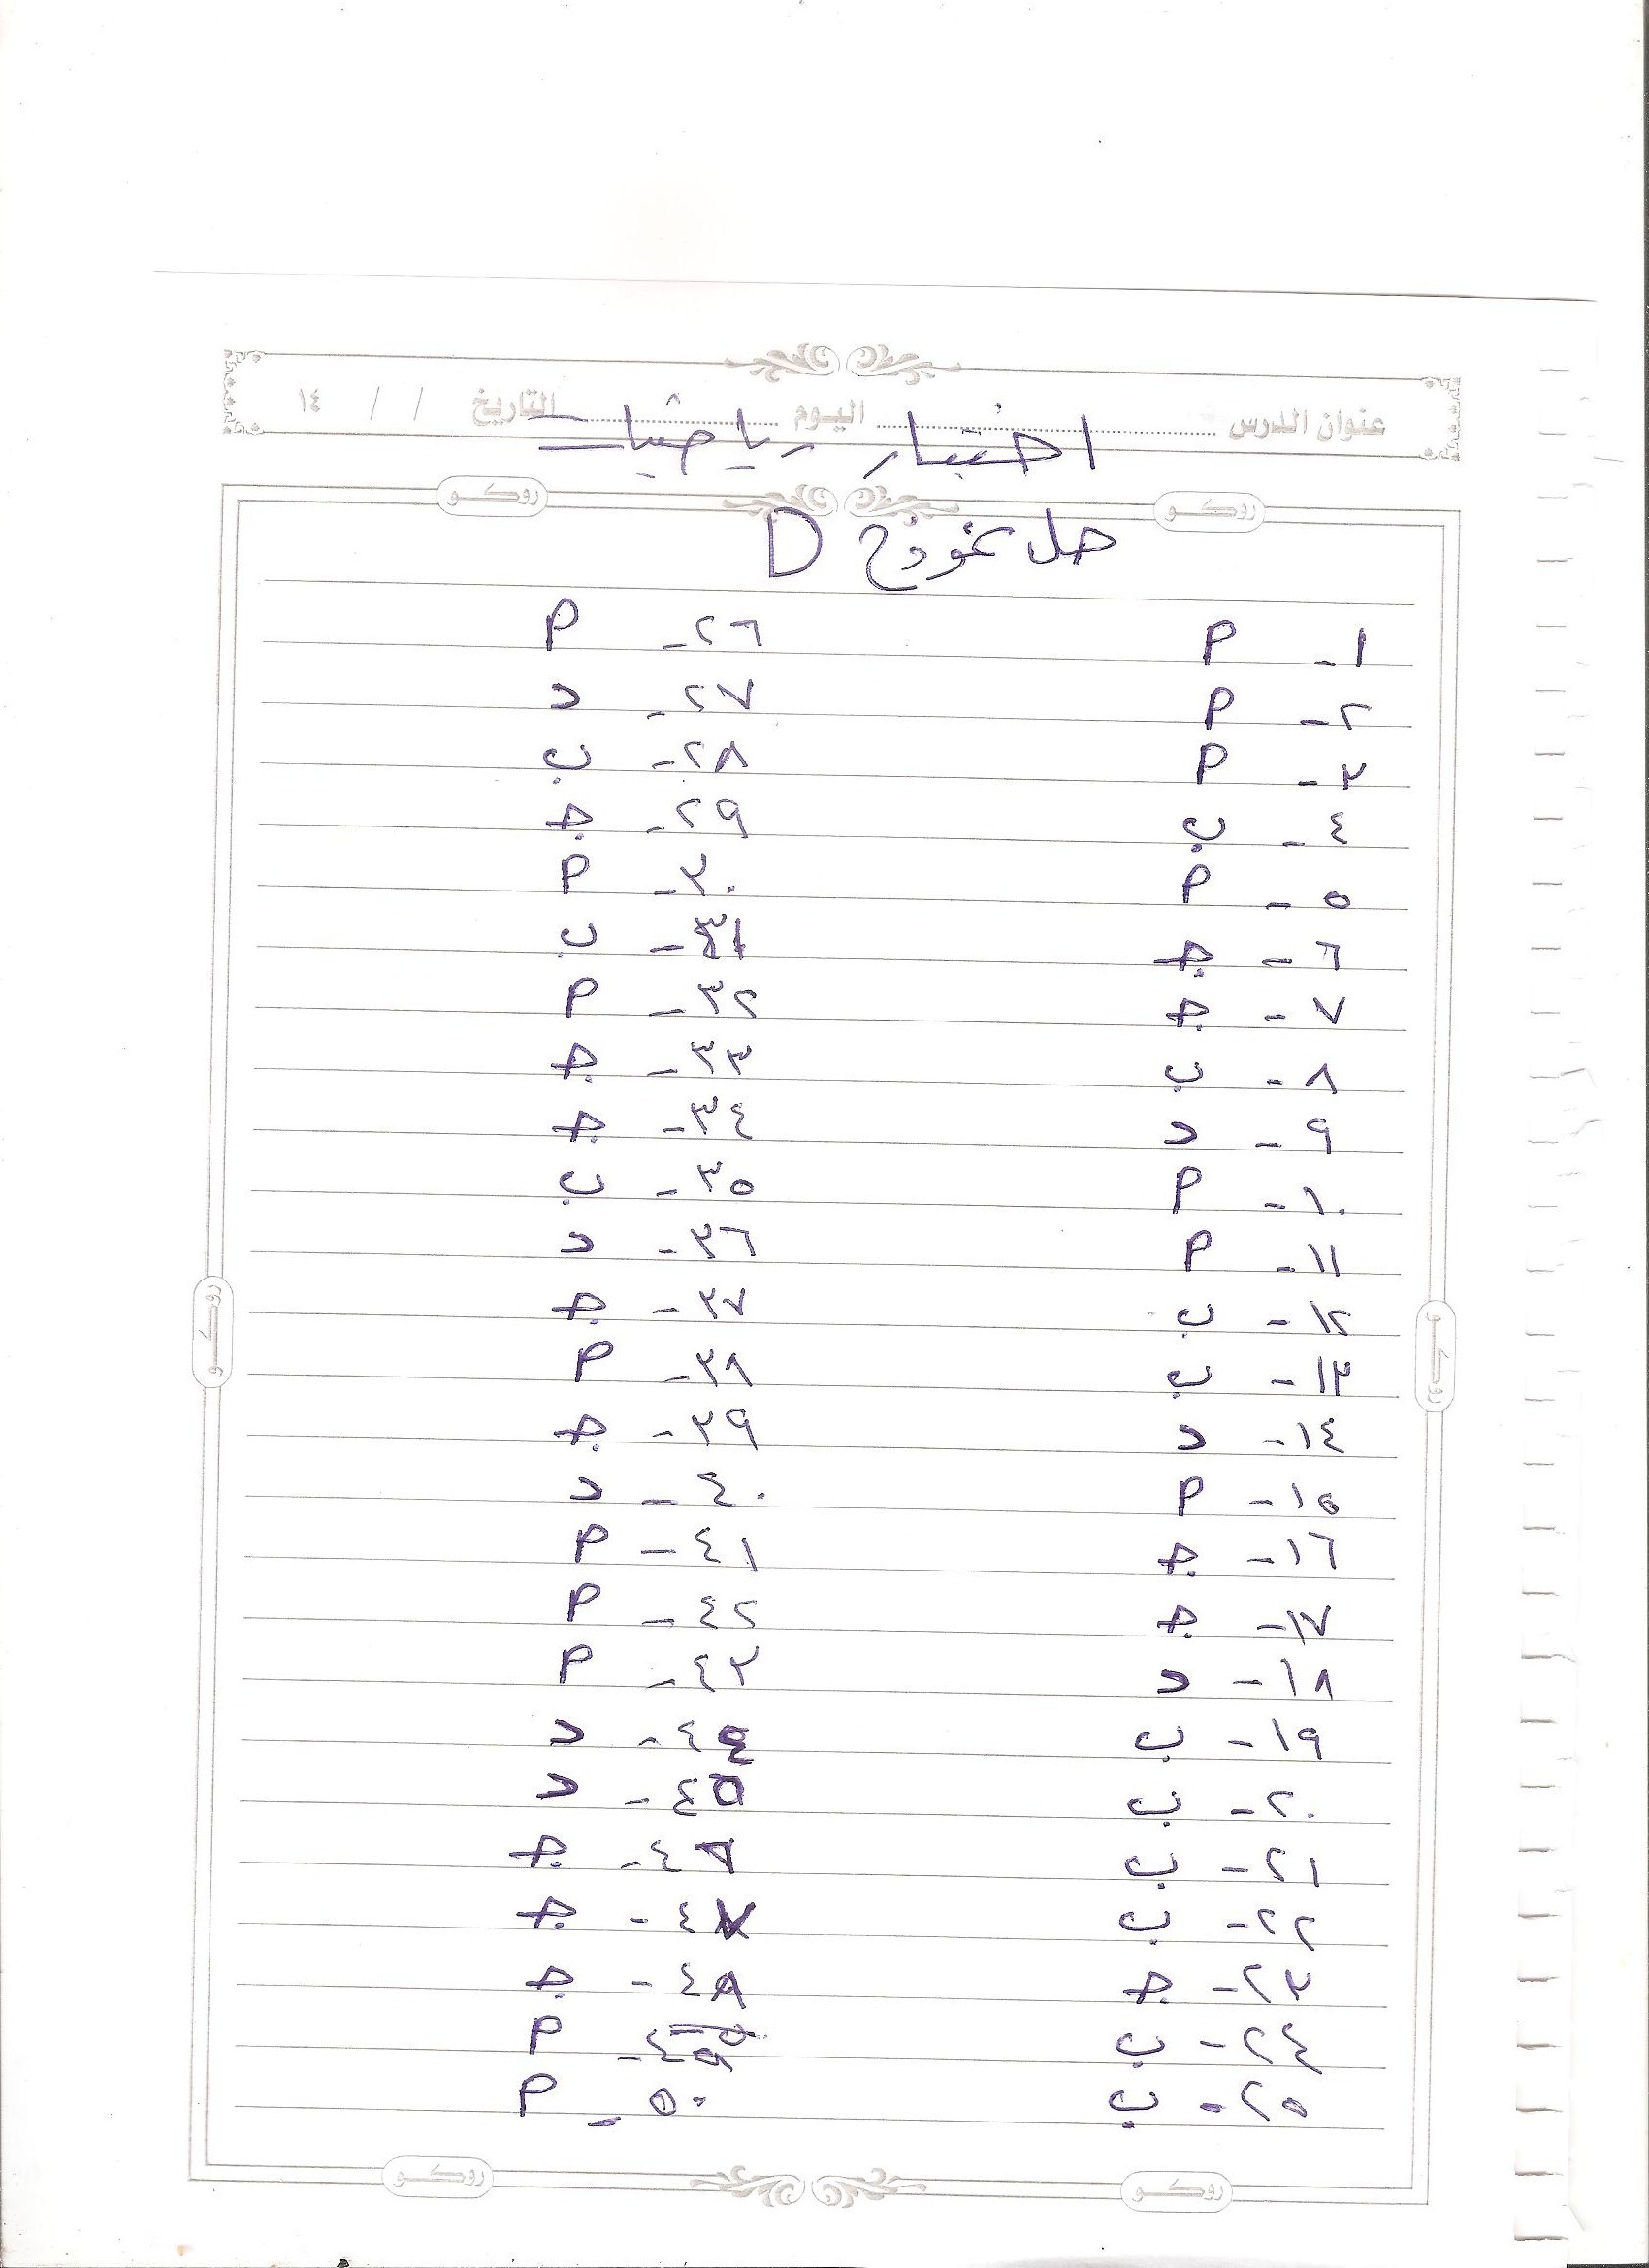 عنوان الدرس اليوم التاريخ / / ١٤
اختبار رياضيات
روكو روكو
حل نموذج D
١- م ٢٦- م
٢- م ٢٧- د
٣- م ٢٨- ب
٤- ب ٢٩- ج
٥- م ٣٠- م
٦- ج ٣١- ب
٧- ج ٣٢- م
٨- ب ٣٣- ج
٩- د ٣٤- ج
١٠- م ٣٥- ب
١١- م ٣٦- د
١٢- ب ٣٧- ج
١٣- ب ٣٨- م
١٤- د ٣٩- ج
١٥- م ٤٠- د
١٦- ج ٤١- م
١٧- ج ٤٢- م
١٨- د ٤٣- م
١٩- ب ٤٤- د
٢٠- ب ٤٥- د
٢١- ب ٤٦- ج
٢٢- ب ٤٧- ج
٢٣- ج ٤٨- ج
٢٤- ب ٤٩- م
٢٥- ب ٥٠- م
روكو روكو
روكو روكو